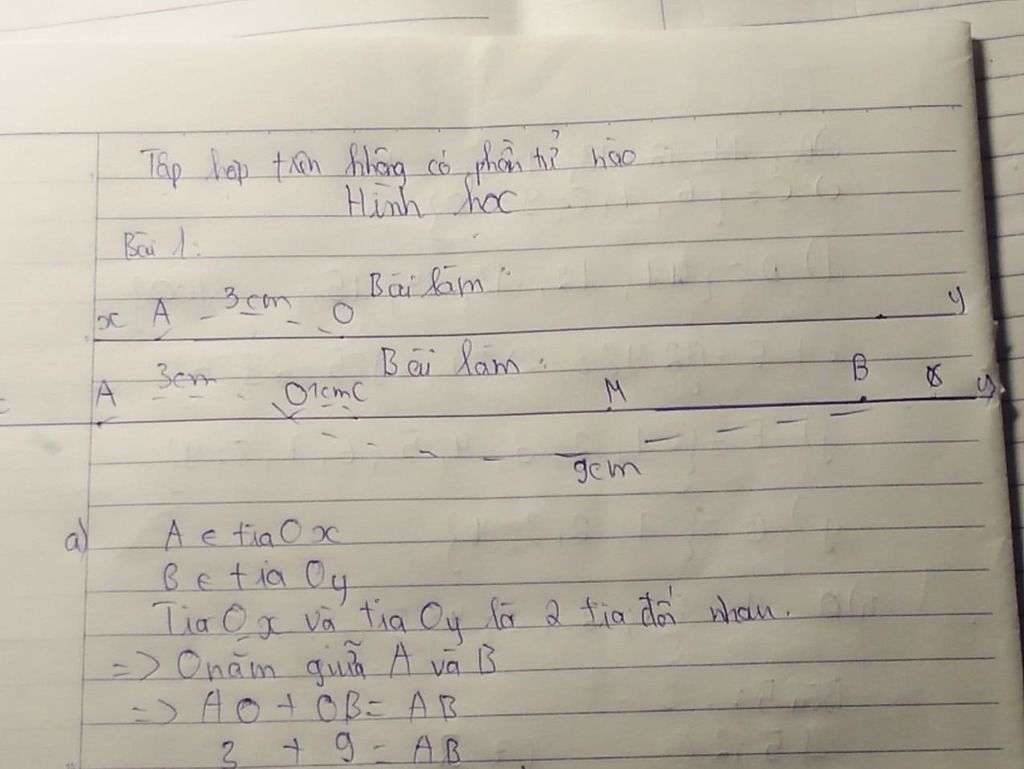 Tập hợp trên không có phần tử nào
Hình học
Bài 1:
Bài làm:
x A 3cm O y
Bài làm:
A 3cm O 1cm C M B y
9cm
a) A ∈ tia Ox
B ∈ tia Oy
Tia Ox và tia Oy là 2 tia đối nhau.
=> O nằm giữa A và B
=> AO + OB = AB
3 + 9 = AB